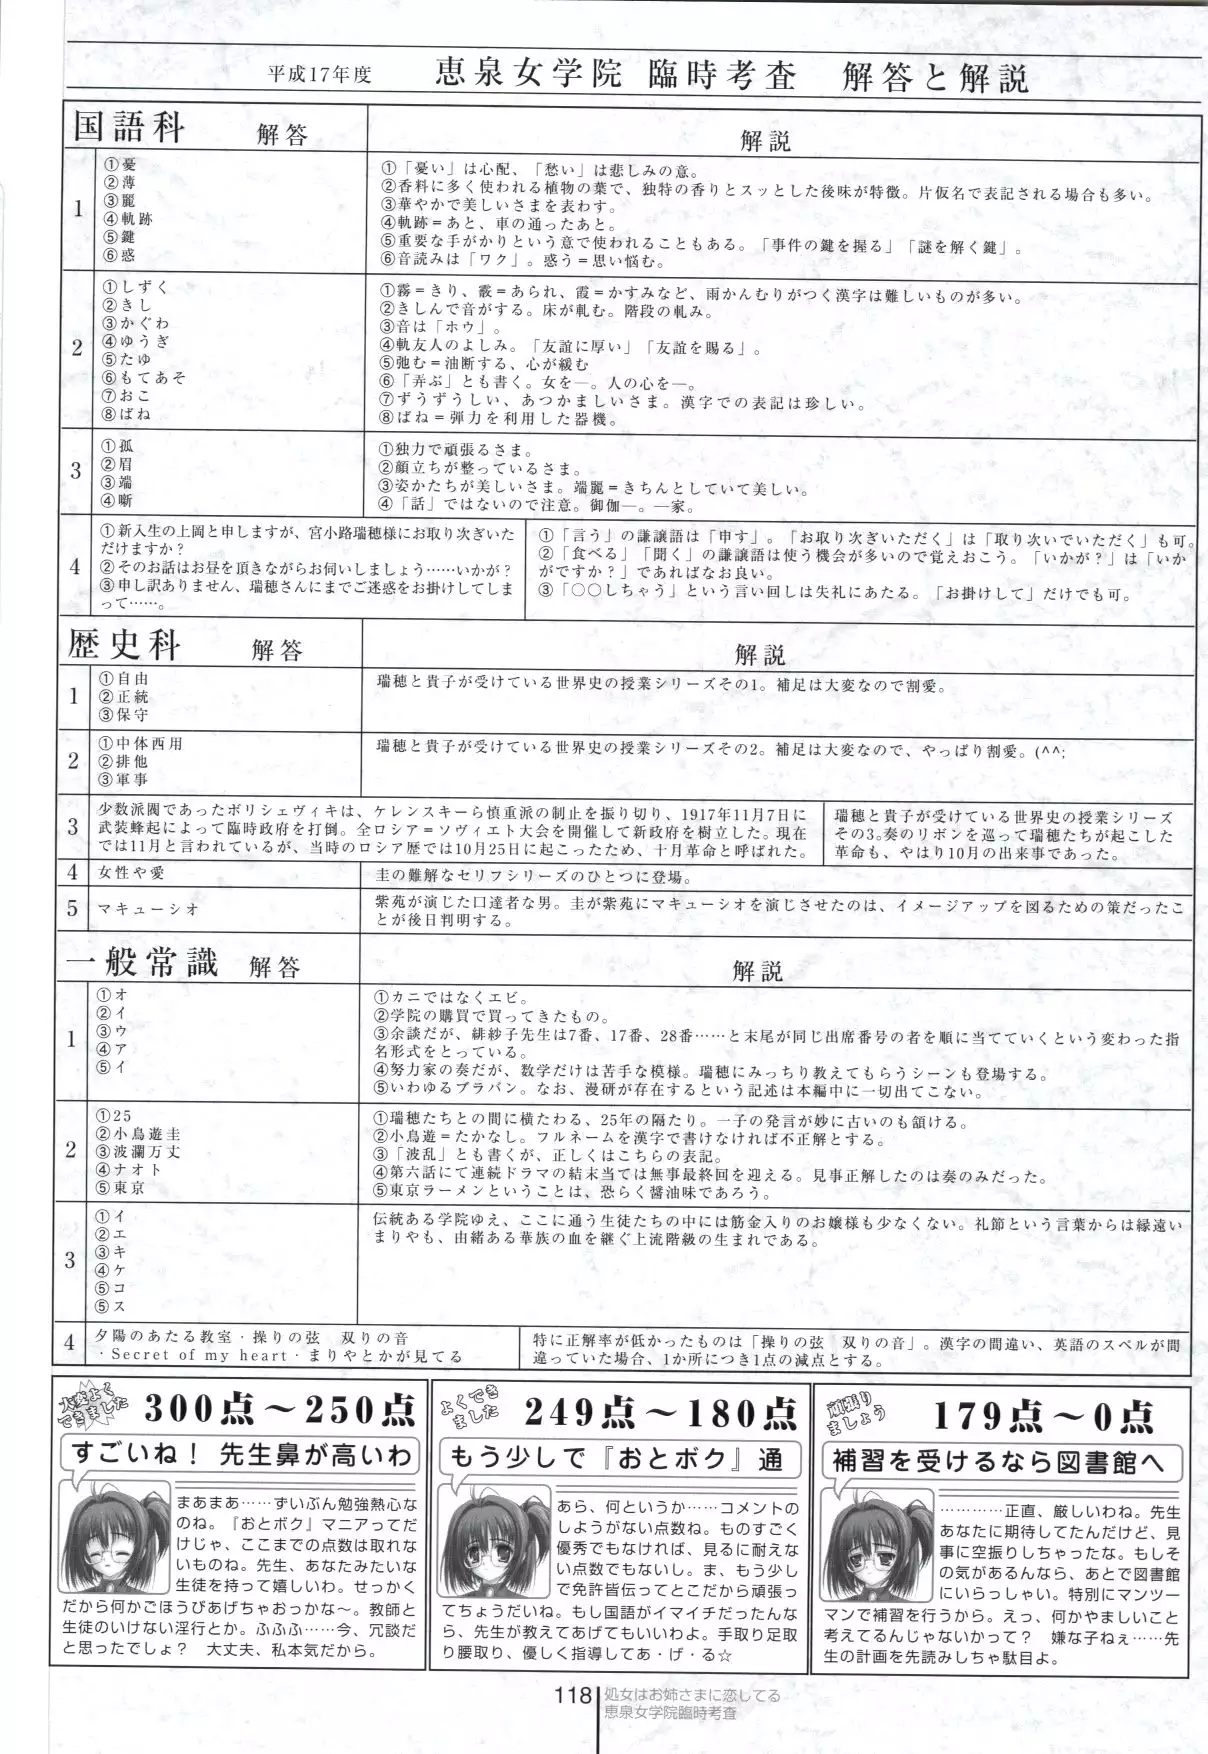 平成17年度 恵泉女学院 臨時考査 解答と解説
国語科 解答
解説
1
①憂
②薄
③麗
④軌跡
⑤鍵
⑥惑
①「憂い」は心配、「愁い」は悲しみの意。
②香料に多く使われる植物の葉で、独特の香りとスッとした後味が特徴。片仮名で表記される場合も多い。
③華やかで美しいさまを表わす。
④軌跡＝あと、車の通ったあと。
⑤重要な手がかりという意で使われることもある。「事件の鍵を握る」「謎を解く鍵」。
⑥音読みは「ワク」。惑う＝思い悩む。
2
①しずく
②きし
③かぐわ
④ゆうぎ
⑤たゆ
⑥もてあそ
⑦おこ
⑧ばね
①霧＝きり、霰＝あられ、霞＝かすみなど、雨かんむりがつく漢字は難しいものが多い。
②きしんで音がする。床が軋む。階段の軋み。
③音は「ホウ」。
④軌友人のよしみ。「友誼に厚い」「友誼を賜る」。
⑤弛む＝油断する、心が緩む
⑥「弄ぶ」とも書く。女を―。人の心を―。
⑦ずうずうしい、あつかましいさま。漢字での表記は珍しい。
⑧ばね＝弾力を利用した器機。
3
①孤
②眉
③端
④噺
①独力で頑張るさま。
②顔立ちが整っているさま。
③姿かたちが美しいさま。端麗＝きちんとしていて美しい。
④「話」ではないので注意。御伽―。―家。
4
①新入生の上岡と申しますが、宮小路瑞穂様にお取り次ぎいた
だけますか？
②そのお話はお昼を頂きながらお伺いしましょう……いかが？
③申し訳ありません、瑞穂さんにまでご迷惑をお掛けしてしま
って……。
①「言う」の謙譲語は「申す」。「お取り次ぎいただく」は「取り次いでいただく」も可。
②「食べる」「聞く」の謙譲語は使う機会が多いので覚えおこう。「いかが？」は「いか
がですか？」であればなお良い。
③「○○しちゃう」という言い回しは失礼にあたる。「お掛けして」だけでも可。
歴史科 解答
解説
1
①自由
②正統
③保守
瑞穂と貴子が受けている世界史の授業シリーズその1。補足は大変なので割愛。
2
①中体西用
②排他
③軍事
瑞穂と貴子が受けている世界史の授業シリーズその2。補足は大変なので、やっぱり割愛。(^^;
3
少数派閥であったボリシェヴィキは、ケレンスキーら慎重派の制止を振り切り、1917年11月7日に
武装蜂起によって臨時政府を打倒。全ロシア＝ソヴィエト大会を開催して新政府を樹立した。現在
では11月と言われているが、当時のロシア歴では10月25日に起こったため、十月革命と呼ばれた。
瑞穂と貴子が受けている世界史の授業シリーズ
その3。奏のリボンを巡って瑞穂たちが起こした
革命も、やはり10月の出来事であった。
4
女性や愛
圭の難解なセリフシリーズのひとつに登場。
5
マキューシオ
紫苑が演じた口達者な男。圭が紫苑にマキューシオを演じさせたのは、イメージアップを図るための策だったこ
とが後日判明する。
一般常識 解答
解説
1
①オ
②イ
③ウ
④ア
⑤イ
①カニではなくエビ。
②学院の購買で買ってきたもの。
③余談だが、緋紗子先生は7番、17番、28番……と末尾が同じ出席番号の者を順に当てていくという変わった指
名形式をとっている。
④努力家の奏だが、数学だけは苦手な模様。瑞穂にみっちり教えてもらうシーンも登場する。
⑤いわゆるブラバン。なお、漫研が存在するという記述は本編中に一切出てこない。
2
①25
②小鳥遊圭
③波瀾万丈
④ナオト
⑤東京
①瑞穂たちとの間に横たわる、25年の隔たり。一子の発言が妙に古いのも頷ける。
②小鳥遊＝たかなし。フルネームを漢字で書けなければ不正解とする。
③「波乱」とも書くが、正しくはこちらの表記。
④第六話にて連続ドラマの結末当ては無事最終回を迎える。見事正解したのは奏のみだった。
⑤東京ラーメンということは、恐らく醤油味であろう。
3
①イ
②エ
③キ
④ケ
⑤コ
⑤ス
伝統ある学院ゆえ、ここに通う生徒たちの中には筋金入りのお嬢様も少なくない。礼節という言葉からは縁遠い
まりやも、由緒ある華族の血を継ぐ上流階級の生まれである。
4
夕陽のあたる教室・操りの弦 双りの音
・Secret of my heart・まりやとかが見てる
特に正解率が低かったものは「操りの弦 双りの音」。漢字の間違い、英語のスペルが間
違っていた場合、1か所につき1点の減点とする。
大変よく
できました
300点～250点
すごいね！ 先生鼻が高いわ
まあまあ……ずいぶん勉強熱心な
のね。『おとボク』マニアってだ
けじゃ、ここまでの点数は取れな
いものね。先生、あなたみたいな
生徒を持って嬉しいわ。せっかく
だから何かごほうびあげちゃおっかな～。教師と
生徒のいけない淫行とか。ふふふ……今、冗談だ
と思ったでしょ？ 大丈夫、私本気だから。
よくでき
ました
249点～180点
もう少しで『おとボク』通
あら、何というか……コメントの
しようがない点数ね。ものすごく
優秀でもなければ、見るに耐えな
い点数でもないし。ま、もう少し
で免許皆伝ってとこだから頑張っ
てちょうだいね。もし国語がイマイチだったんな
ら、先生が教えてあげてもいいわよ。手取り足取
り腰取り、優しく指導してあ・げ・る☆
頑張り
ましょう
179点～0点
補習を受けるなら図書館へ
…………正直、厳しいわね。先生
あなたに期待してたんだけど、見
事に空振りしちゃったな。もしそ
の気があるんなら、あとで図書館
にいらっしゃい。特別にマンツー
マンで補習を行うから。えっ、何かやましいこと
考えてるんじゃないかって？ 嫌な子ねぇ……先
生の計画を先読みしちゃ駄目よ。
118
処女はお姉さまに恋してる
恵泉女学院臨時考査